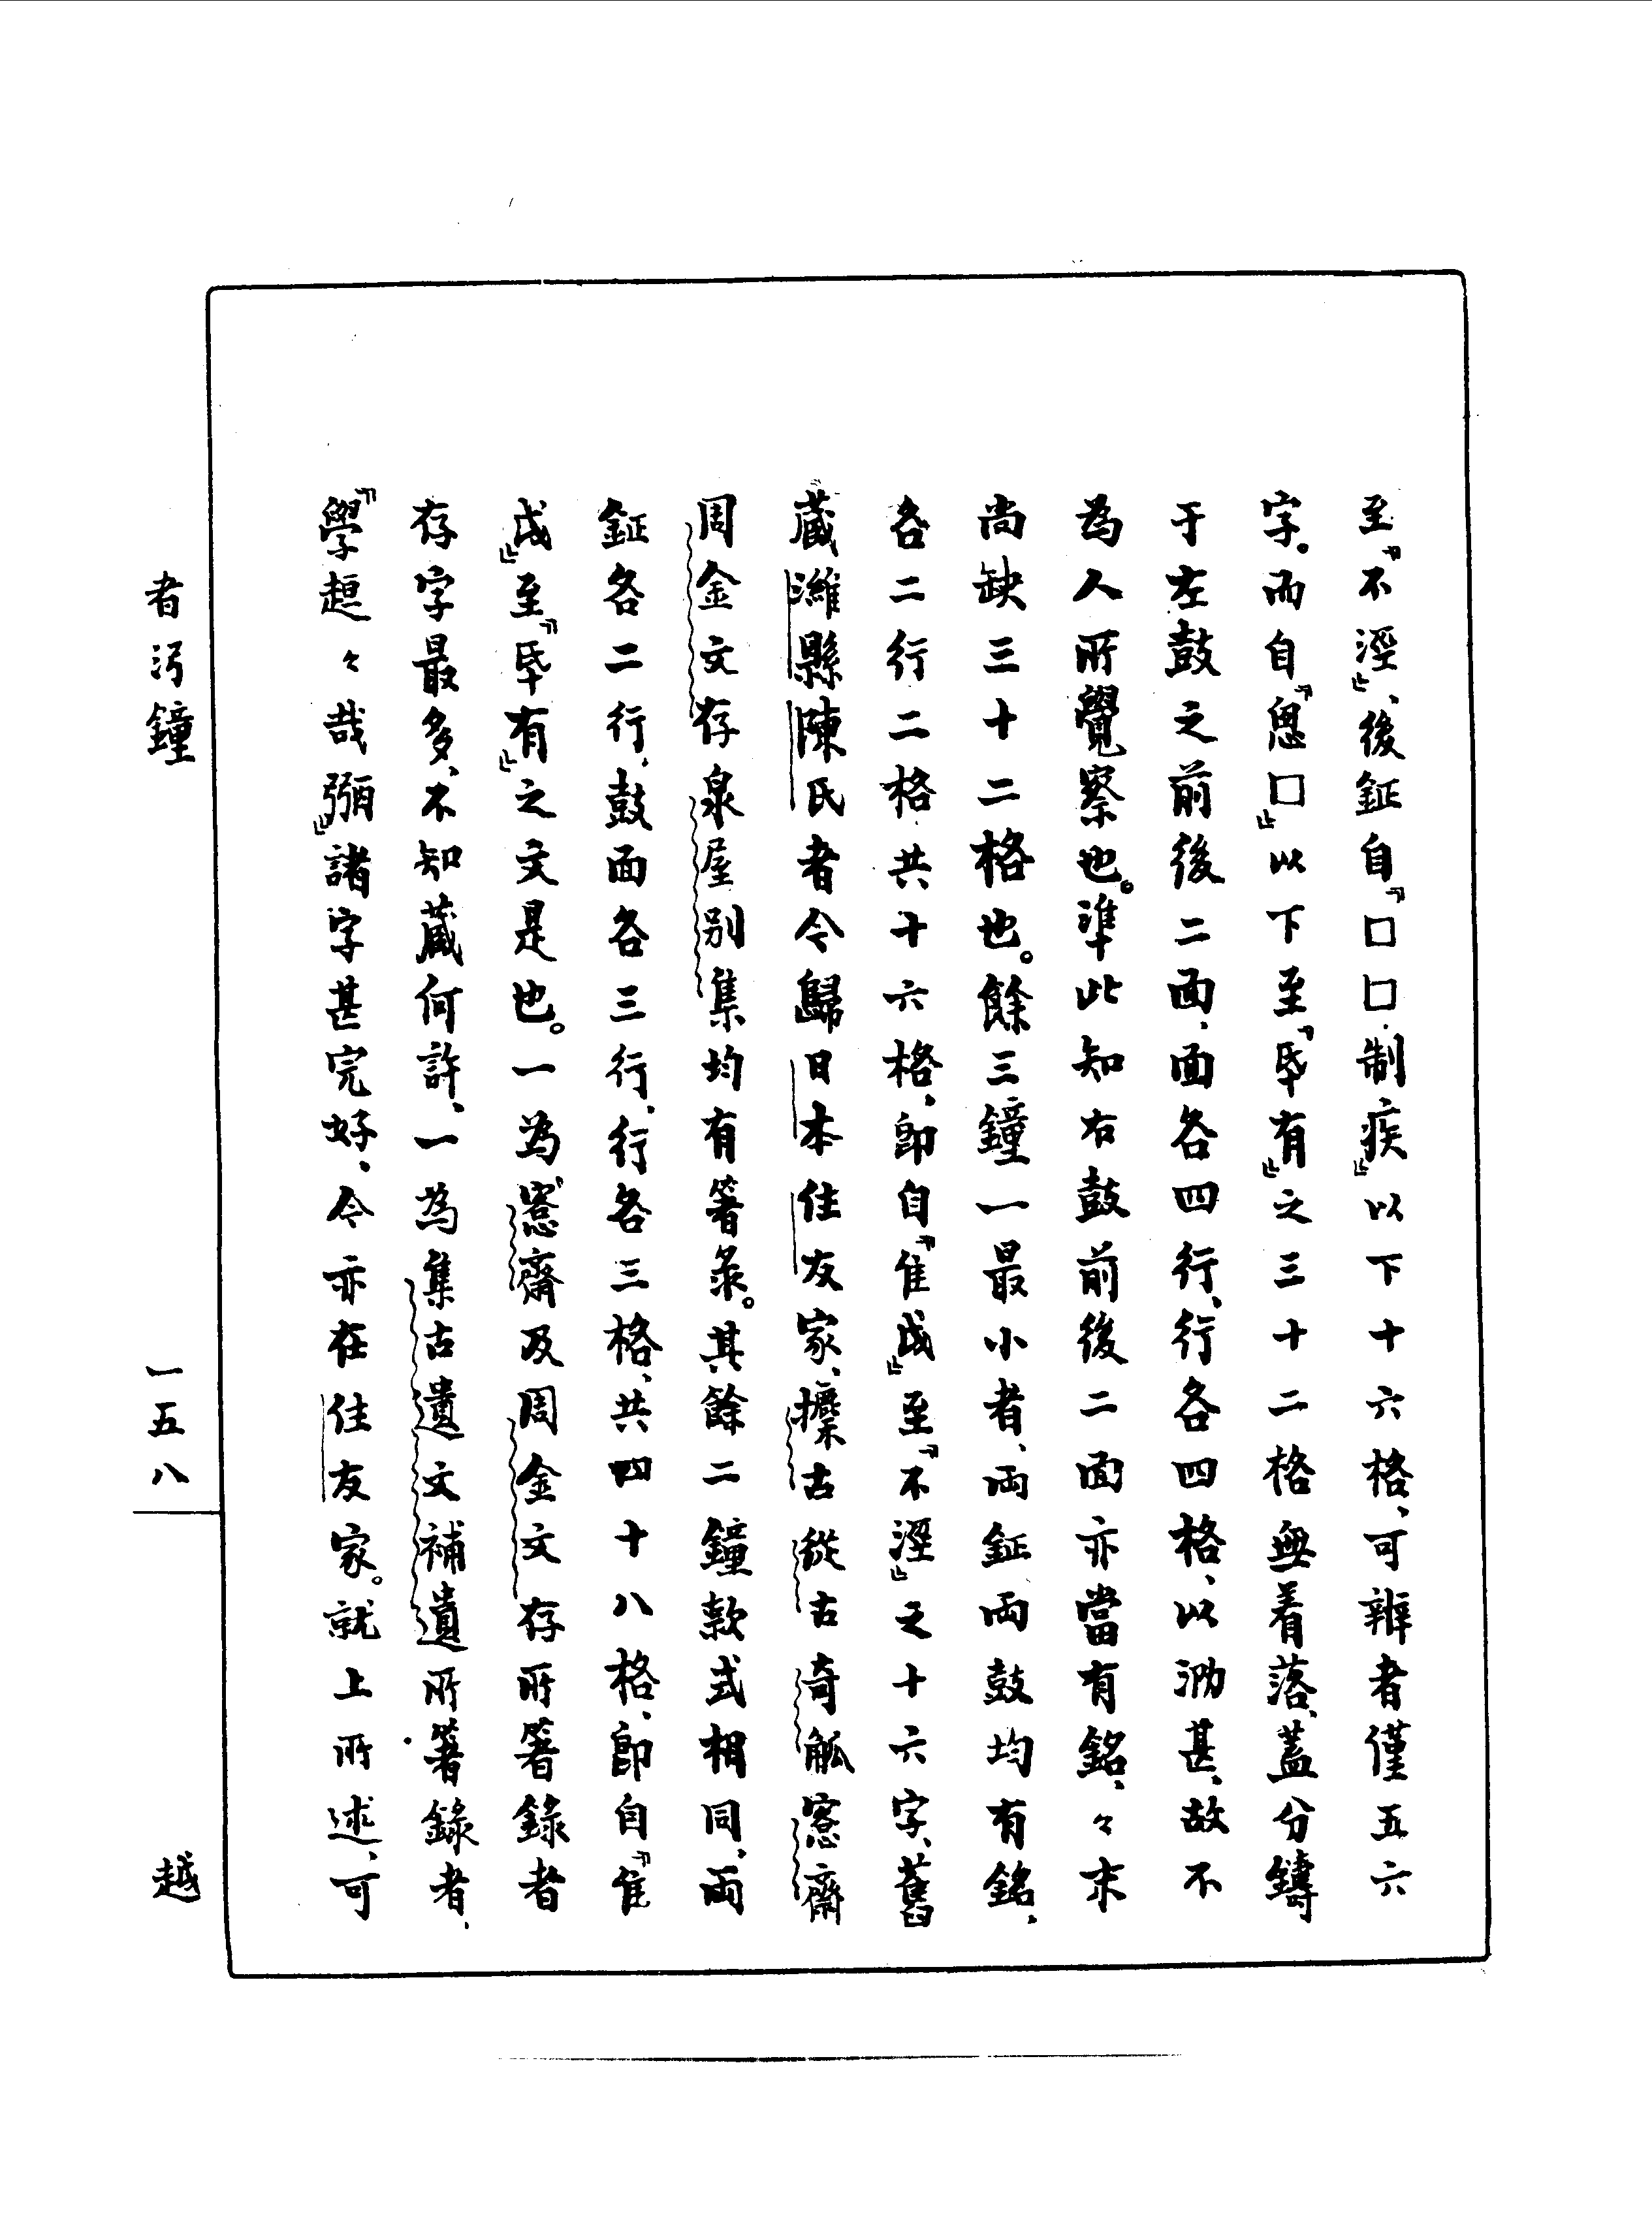 至『不淫』、後鉦自『□□、制疾』以下十六格、可辨者僅五六
字。而自『恖□』以下至『氒有』之三十二格無着落、蓋分鑄
于左鼓之前後二面、面各四行、行各四格、以泐甚、故不
為人所覺察也。準此知右鼓前後二面亦當有銘、々末
尚缺三十二格也。餘三鐘一最小者、両鉦両鼓均有銘、
各二行二格共十六格、即自『隹戉』至『不淫』之十六字、舊
藏濰縣陳氏者今歸日本住友家、攈古從古奇觚愙齋
周金文存泉屋別集均有箸彔。其餘二鐘款式相同、両
鉦各二行、鼓面各三行、行各三格、共四十八格、即自『隹
戉』至『氒有』之文是也。一為愙齋及周金文存所箸錄者
存字最多、不知藏何許、一為集古遺文補遺所箸錄者、
『學趄々哉弼』諸字甚完好、今亦在住友家。就上所述、可
者汈鐘
一五八
越